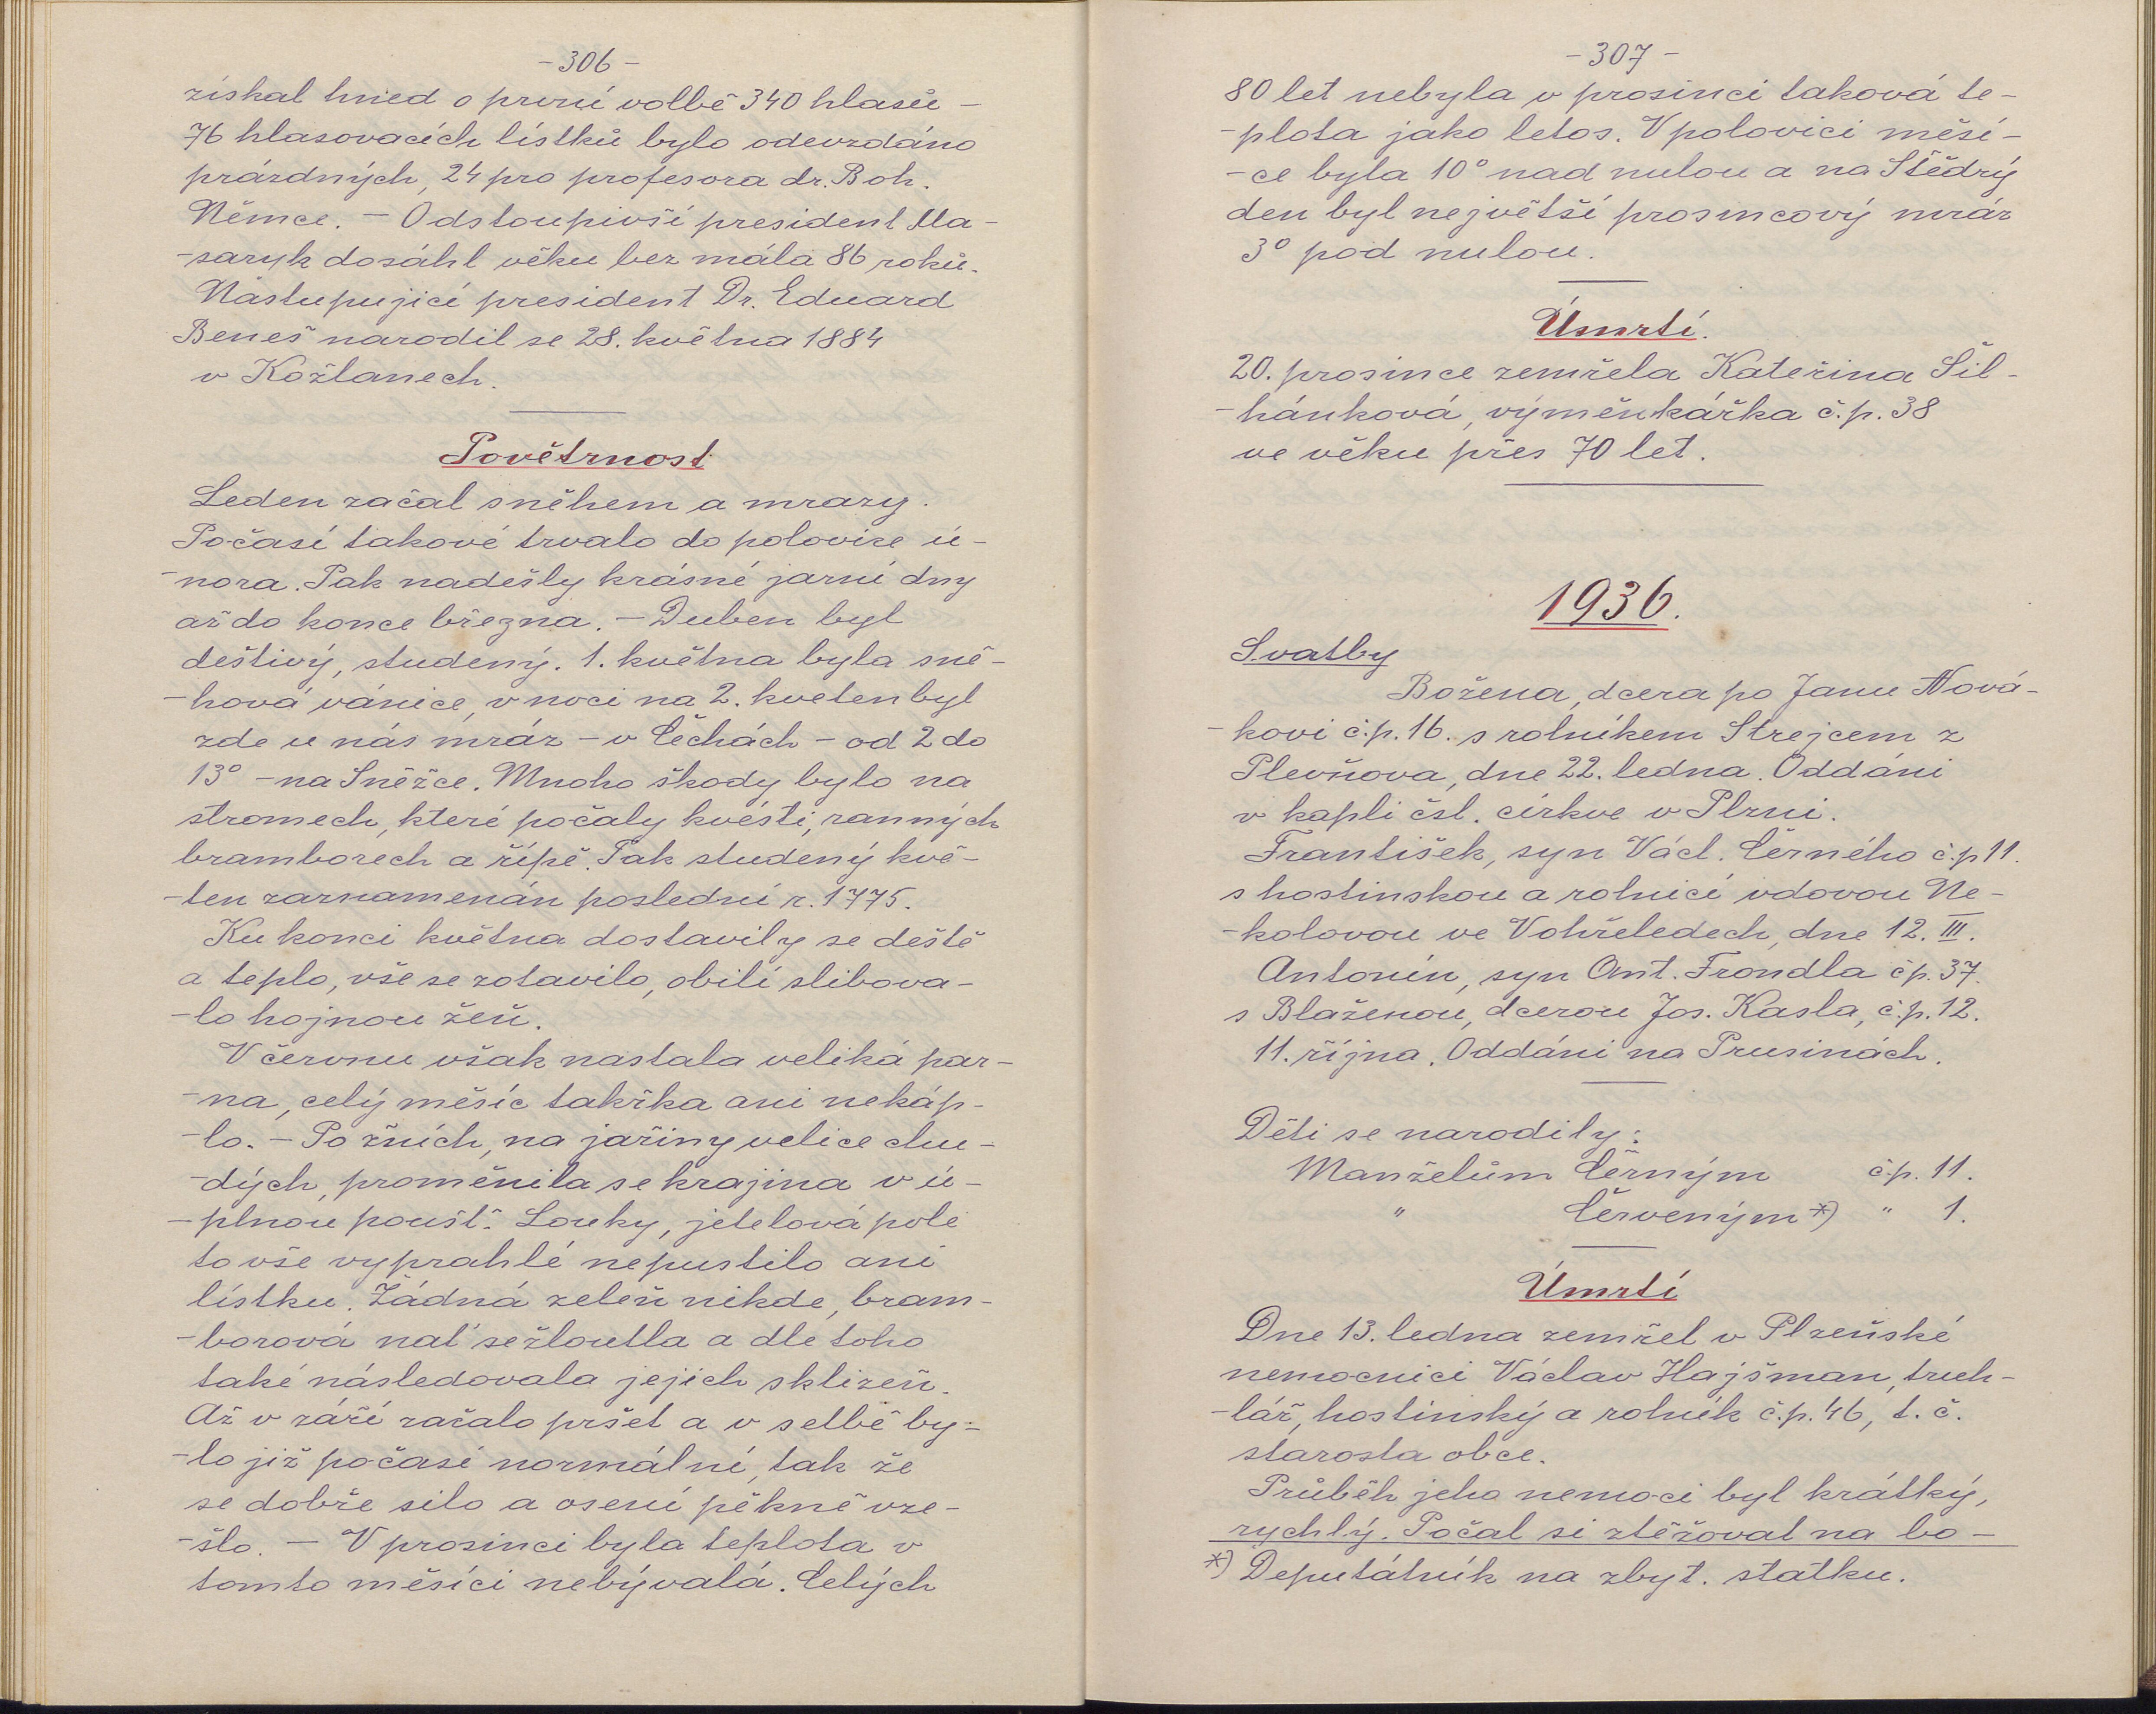 - 306 -
získal hned o první volbě 340 hlasů -
76 hlasovacích lístků bylo odevzdáno
prázdných, 24 pro profesora dr. Boh.
Němce. - Odstoupivší president Ma-
-saryk dosáhl věku bez mála 86 roků.
Nastupující president Dr. Eduard
Beneš narodil se 28. května 1884
v Kožlanech.
Povětrnost
Leden začal sněhem a mrazy.
Počasí takové trvalo do polovice ú-
-nora. Pak nadešly krásné jarní dny
až do konce března. - Duben byl
deštivý, studený. 1. května byla sně-
-hová vánice, v noci na 2. kveten byl
zde u nás mráz - v Čechách - od 2 do
13° - na Sněžce. Mnoho škody bylo na
stromech, které počaly kvésti, ranných
bramborech a řípě. Tak studený kvě-
-ten zaznamenán poslední r. 1775.
Ku konci května dostavily se deště
a teplo, vše se zotavilo, obilí slibova-
-lo hojnou žeň.
V červnu však nastala veliká par-
-na, celý měsíc takřka ani nekáp-
-lo. - Po žních, na jařiny velice chu-
-dých, proměnila se krajina v ú-
-plnou poušť. Louky, jetelová pole
to vše vyprahlé nepustilo ani
lístku. Žádná zeleň nikde, bram-
-borová nať sežloutla a dle toho
také následovala jejich sklizeň.
Až v září začalo pršet a v setbě by-
-lo již počasí normální, tak že
se dobře silo a osení pěkně vze-
-šlo. - V prosinci byla teplota v
tomto měsíci nebývalá. Celých
- 307 -
80 let nebyla v prosinci taková te-
-plota jako letos. V polovici měsí-
-ce byla 10° nad nulou a na Štědrý
den byl největší prosincový mráz
3° pod nulou.
Úmrtí.
20. prosince zemřela Kateřina Šil-
-hánková, výměnkářka č.p. 38
ve věku přes 70 let.
1936.
Svatby
Božena, dcera po Janu Nová-
-kovi č.p. 16. s rolníkem Strejcem z
Plevňova, dne 22. ledna. Oddáni
v kapli čsl. církve v Plzni.
František, syn Václ. Černého č.p 11.
s hostinskou a rolnicí vdovou Ne-
-kolovou ve Vohřeledech, dne 12. III.
Antonín, syn Ant. Frondla čp. 37.
s Blaženou, dcerou Jos. Kasla, č.p. 12.
11. října. Oddáni na Prusinách.
Děti se narodily:
Manželům Černým č.p. 11.
" Červeným *) " 1.
Úmrtí
Dne 13. ledna zemřel v Plzeňské
nemocnici Václav Hajšman, truh-
-lář, hostinský a rolník č.p. 46, t. č.
starosta obce.
Průběh jeho nemoci byl krátký,
rychlý. Počal si ztěžoval na bo-
*) Deputátník na zbyt. statku.